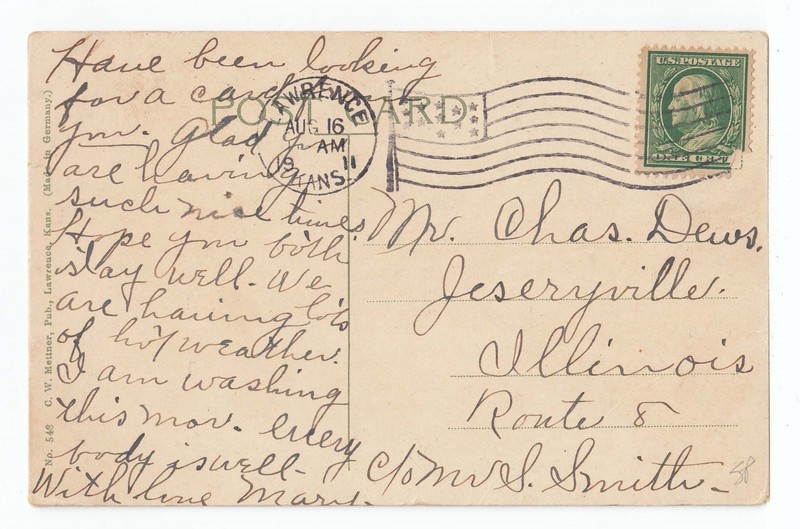 Have been looking
for a card from
you. Glad you
are having
such nice times.
Hope you both
stay well. We
are having lots
of hot weather.
I am washing
this mor. Every
body is well.
With love Mary.
POST CARD
LAWRENCE
AUG 16
AM
19 11
KANS.
U.S. POSTAGE
ONE CENT
Mr. Chas. Dews.
Jeseryville.
Illinois
Route 8
c/o Mr S. Smith
58
No. 548 C. W. Mettner, Pub., Lawrence, Kans. (Made in Germany.)